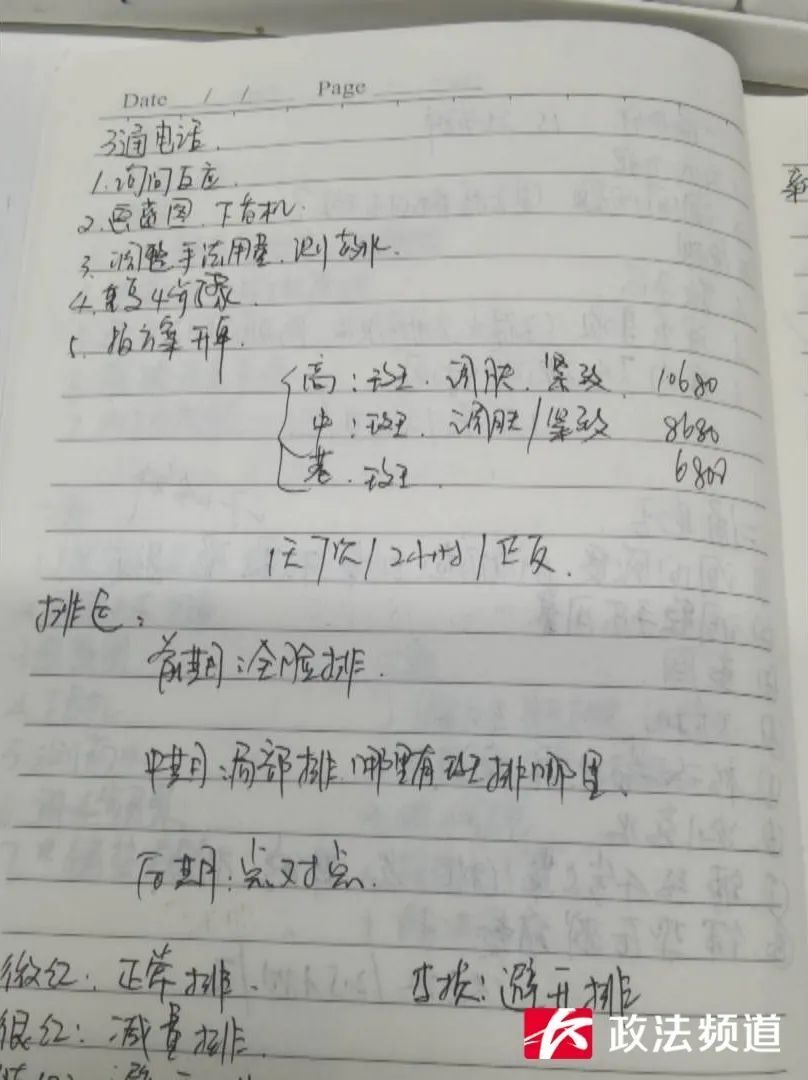 Date / / Page
3通电话.
1.询问反应.
2.画蓝图.下有机.
3.调整手法用量.测刮水.
4.
5.指方案开单.
高:斑.调肤.紧致. 10680
中:斑.调肤/紧致 8680
基.斑. 6800
1天7次/24小时/正反.
排色:
前期:全脸排.
中期:局部排.哪里有斑排哪里.
后期:点对点.
微红:正常排. 破损:避开排
很红:减量排.
政法频道